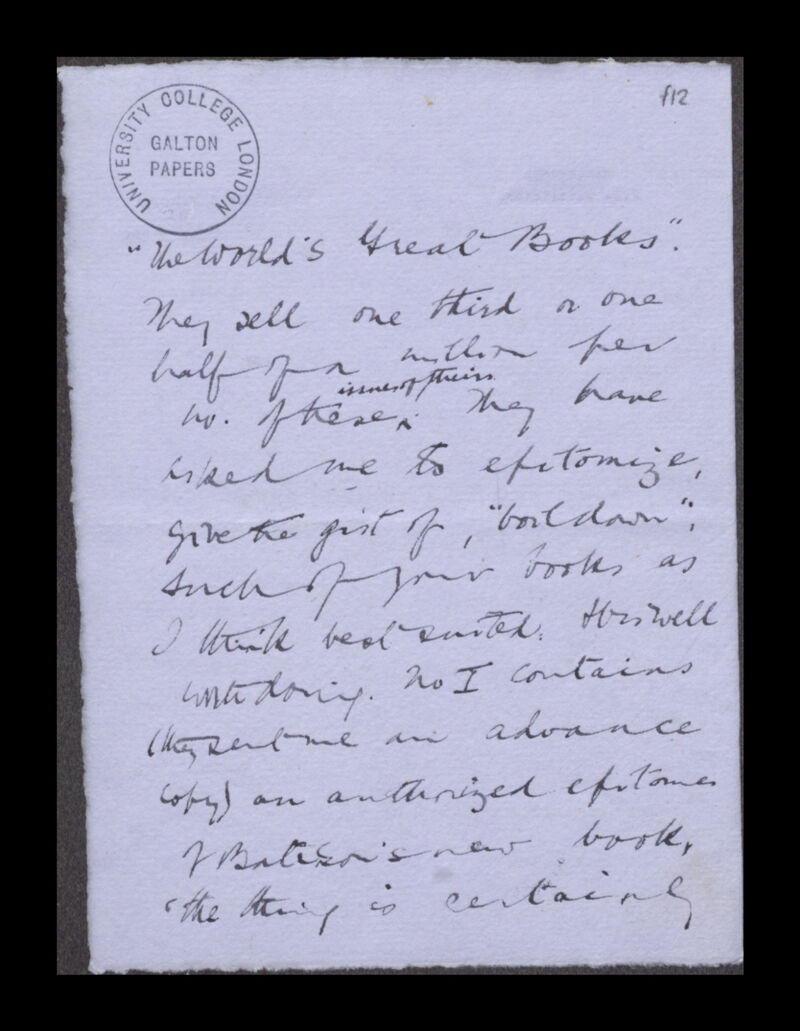 f12
UNIVERSITY COLLEGE LONDON
GALTON
PAPERS
"The World's Great Books".
They sell one third or one
half of a million per
issues of theirs
no. of these. They have
asked me to epitomize,
give the gist of, "boil down",
such of your books as
I think best suited. It is well
worth doing. No I contains
(they sent me an advance
copy) an authorized epitome
of Bateson's new book,
"the thing is certainly